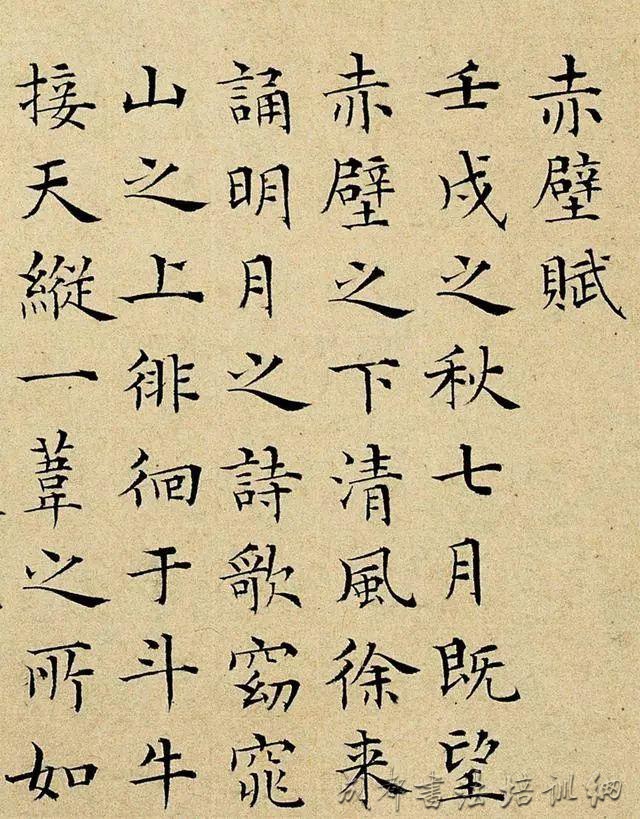 赤壁賦
壬戌之秋七月既望
赤壁之下清風徐来
誦明月之詩歌窈窕
山之上徘徊于斗牛
接天縦一葦之所如
成都書法培训網